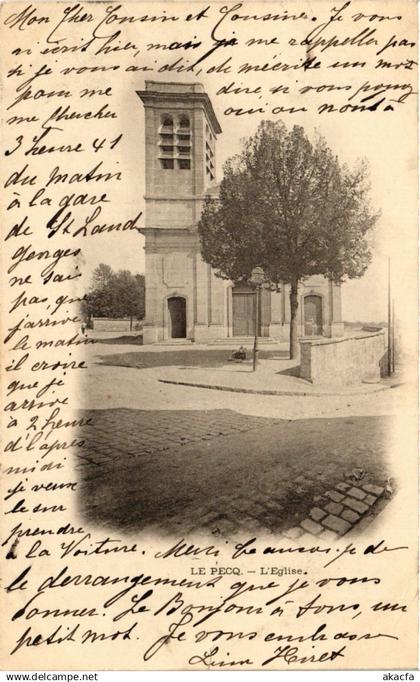 Mon Cher Cousin et Cousine. Je vous
ai écrit hier, mais je me rappeler pas
si je vous ai dit, de m'écrite un mot
pour me dire, si vous pouvez
me chercher oui ou non à
3 heure 41
du matin
à la gare
de St Land
Georges
ne sais
pas que
j'arrive
à matin
il croire
que je
arrive
à 2 heure
d'l'après
midi
je veux
le sur
prendre
à la Voiture. Merci beaucous je de
LE PECQ. — L'Eglise.
le derrangement que je vous
donner. Le Bonjour à tous, un
petit mot. Je vous embrasse
Hiret
www.akafi.com
AK-akafi